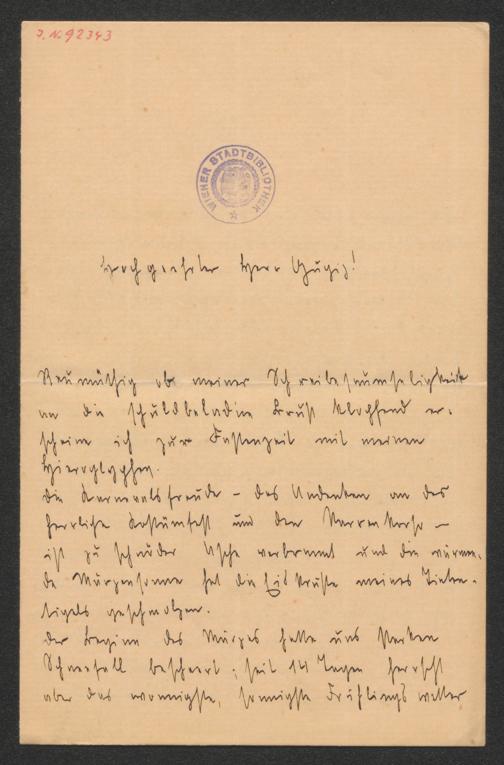 J. N. 92343
WIENER STADTBIBLIOTHEK
Hochgeehrter Herr Gugiz!
Reumüthig ob meiner Schreibesaumseligkeit
an die schuldbeladene Brust klopfend er-
scheine ich zur Fastenzeit mit meinen
Hieroglyphen.
Die Karnevalsfreude – das Andenken an das
herrliche Kostümfest und den Narrenkorso –
ist zu schnöder Asche verbrannt und die wärmen-
de Märzensonne hat die Eiskruste meines Tinten-
tigels geschmolzen.
Der Beginn des Märzes hatte uns starken
Schneefall beschert; seit 14 Tagen herrscht
aber das wonnigste, sonnigste Frühlingswetter